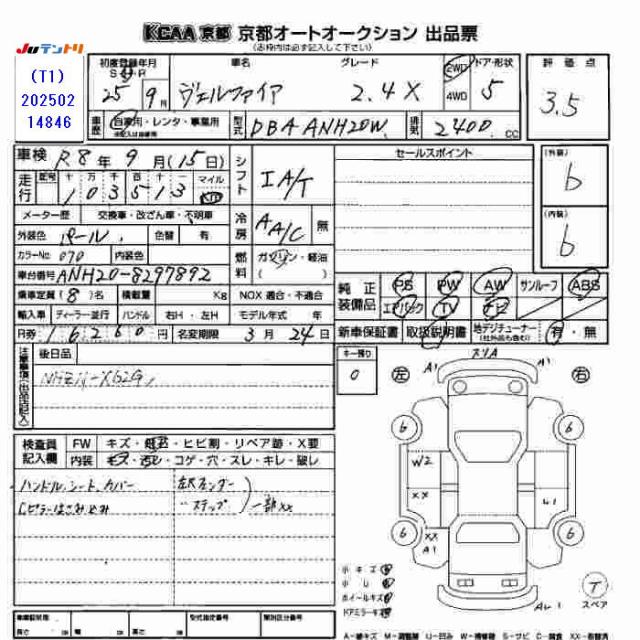 KCAA 京都 京都オートオークション 出品票
(赤枠内は必ず記入して下さい)
Juテントリ
(T1)
202502
14846
初度登録年月 車名 グレード ドア・形状 評価点
S・H・R
25年 9月 ヴェルファイア 2.4X 2WD 4WD 5 3.5
車歴 自家用・レンタ・事業用 型式 DBA ANH20W 排気 2400 cc
車検 R8年9月(15日) シフト IA/T セールスポイント (外装) b
走行 十 万 千 百 十 一 マイル km
103513
メーター歴 交換車・改ざん車・不明車 冷房 AA/C 無 (内装) b
外装色 パール 色替 有
カラーNo 070 内装色 燃料 ガソリン・軽油
車台番号 ANH20-8297892
乗車定員 (8)名 積載量 Kg NOX 適合・不適合
純正装備品 PS PW AW サンルーフ ABS
エアバック TV ナビ
輸入車 ディーラー 並行 ハンドル 右H・左H モデル年式 年
月券 16260円 名変期限 3月24日
新車保証書 取扱説明書 地デジチューナー(社外品も含む) 有・無
注意事項(出品店記入) 後日品
キー預り 0
左 右
A1 スリA A1
6 6
W2
XX U1
XX A1
6 6
検査員記入欄 FW キズ・飛石・ヒビ割・リペア跡・X要
内装 キズ・汚レ・コゲ・穴・スレ・キレ・破レ
ハンドル、シート、カバー 左右フェンダー
Cピラーはさみ込み 〃ステップ 一部XX
小キズ
小U
ホイールキズ
ドアミラーキズ
T スペア
車庫証明用 型式指定番号 類別区分番号
長さ cm 幅 cm 高さ cm